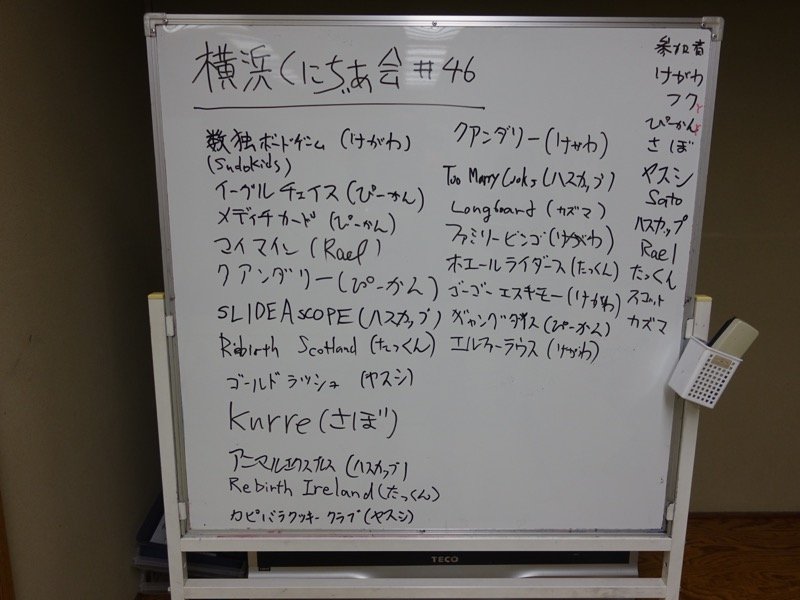 横浜くにぢぁ会 #46
数独ボードゲーム (けがわ)
(Sudokids)
イーグルチェイス (ぴーかん)
メディチカード (ぴーかん)
マイマイン (Rael)
クアンダリー (ぴーかん)
SLIDEASCOPE (ハスカップ)
Rebirth Scotland (たっくん)
ゴールドラッシュ (ヤスシ)
Kurre (さぼ)
アニマルエクスプレス (ハスカップ)
Rebirth Ireland (たっくん)
カピバラクッキークラブ (ヤスシ)
クアンダリー (けがわ)
Too Many Cooks (ハスカップ)
Longboard (カズマ)
ファミリービンゴ (けがわ)
ホエールライダース (たっくん)
ゴーゴーエスキモー (けがわ)
ギャングダイス (ぴーかん)
エルファーラウス (けがわ)
参加者
けがわ
フク
ぴーかん
さぼ
ヤスシ
Sato
ハスカップ
Rael
たっくん
スコット
カズマ
TECO